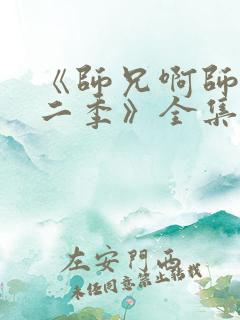 《師兄啊師
二季》全集
左安門西
未經同意禁止轉載